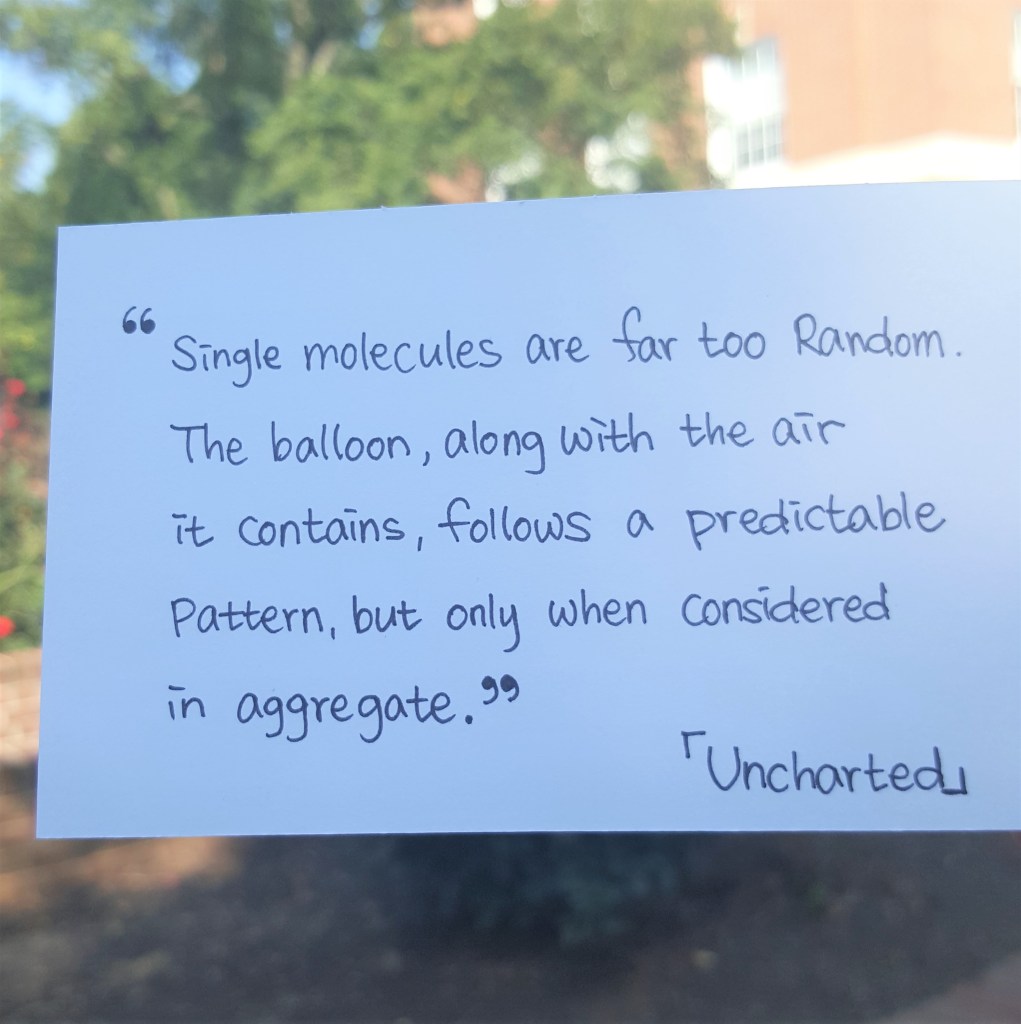 “Single molecules are far too Random.
The balloon, along with the air
it contains, follows a predictable
Pattern, but only when considered
in aggregate.”
「Uncharted」